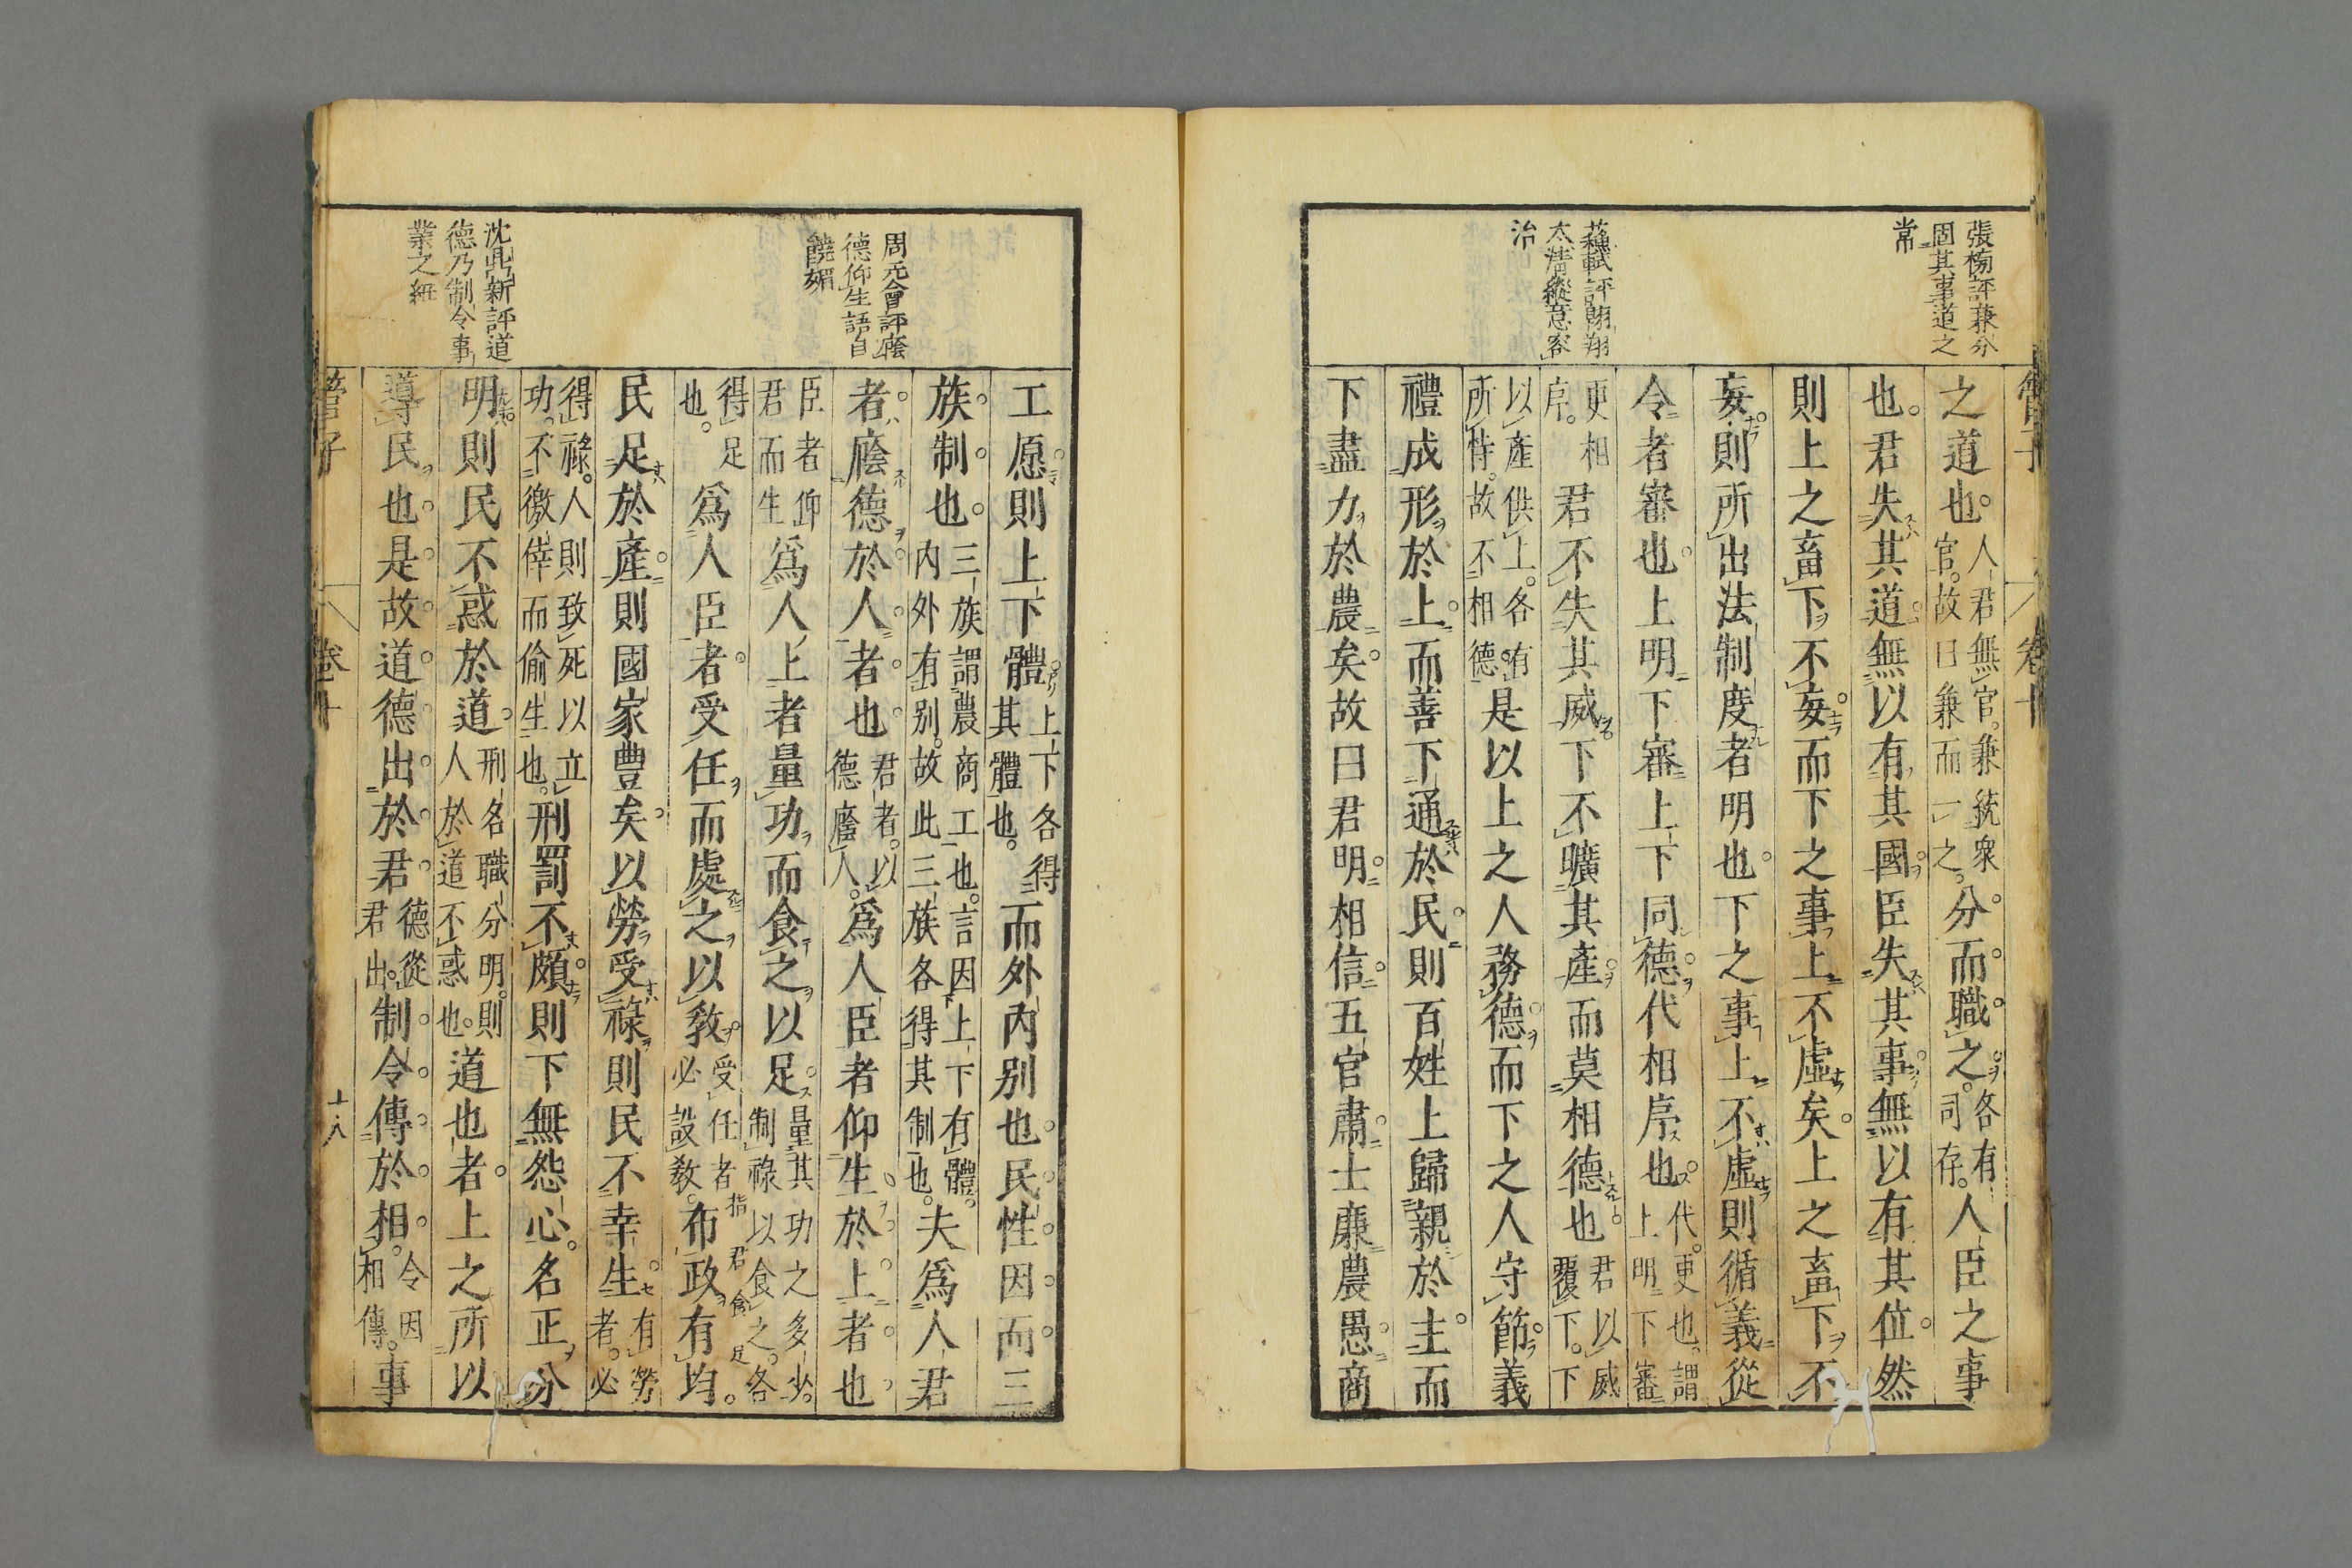 管子
卷十
張榜評兼分
固其事道之
常
蘇軾評翺翔
太清縱意容
治
之道也人君無官兼統衆官故曰兼而一之分而職之各有司存人臣之事
也君失其道無以有其國臣失其事無以有其位然
則上之畜下不妄而下之事上不虛矣上之畜下不
妄則所出法制度者明也下之事上不虛則循義從
令者審也上明下審上下同德代相序也代更也謂上明下審
更相序君不失其威下不曠其產而莫相德也君以威覆下下
以產供上各有所恃故不相德是以上之人務德而下之人守節義
禮成形於上而善下通於民則百姓上歸親於主而
下盡力於農矣故曰君明相信五官肅士廉農愚商
周元會評廕
德仰生語自
饒媚
沈鼎新評道
德乃制令事
業之
工愿則上下體上下各得其體也而外內别也民性因而三
族制也三族謂農商工也言因上下有體內外有别故此三族各得其制也夫爲人君
者廕德於人者也君者以德廕人爲人臣者仰生於上者也
臣者仰君而生爲人上者量功而食之以足量其功之多少制祿以食之各
得足也爲人臣者受任而處之以敎受任者必設敎布政有均
民足於產則國家豊矣以勞受祿則民不幸生有勞者必
得祿人則致死以立功不徼倖而偷生也刑罰不頗則下無怨心名正分
明則民不惑於道刑名職分明則人於道不惑也道也者上之所以
導民也是故道德出於君德從君出制令傳於相令因相傳事
管子
卷十
十八